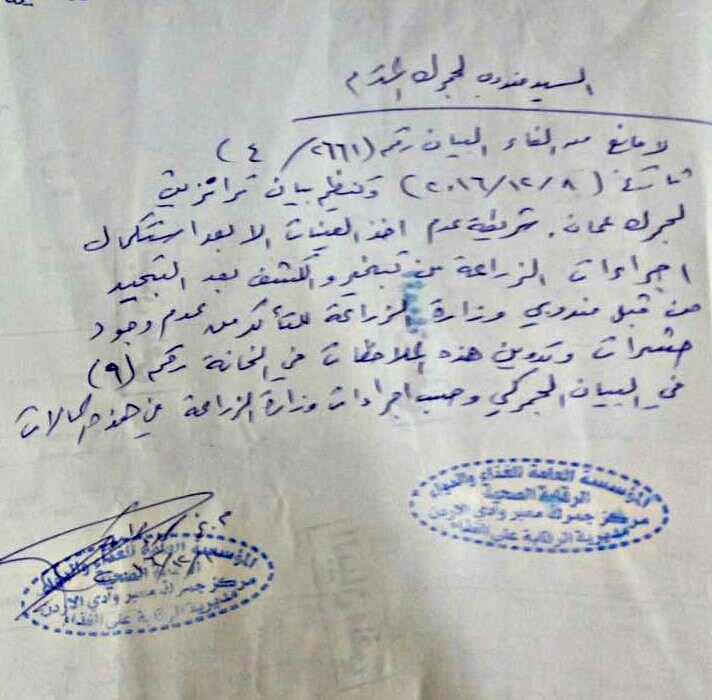 السيد مندوب الجمرك المحترم
لا مانع من الغاء البيان رقم (٢٦٦١ / ٤)
تاريخ (٢٠١٦/١٢/٨) وتنظيم بيان ترانزيت
لجمرك عمان. شريطة عدم اخذ العينات الا بعد استكمال
اجراءات الزراعة من تبخير والكشف بعد التبخير
من قبل مندوبي وزارة الزراعة للتأكد من عدم وجود
حشرات وتدوين هذه الملاحظات في الخانة رقم (٩)
في البيان الجمركي وحسب اجراءات وزارة الزراعة في هذه الحالات
المؤسسة العامة للغذاء والدواء
الرقابة الصحية
مركز جمرك معبر وادي الاردن
مديرية الرقابة على الغذاء
المؤسسة العامة للغذاء والدواء
الصحية
مركز جمرك معبر وادي الاردن
مديرية الرقابة على الغذاء